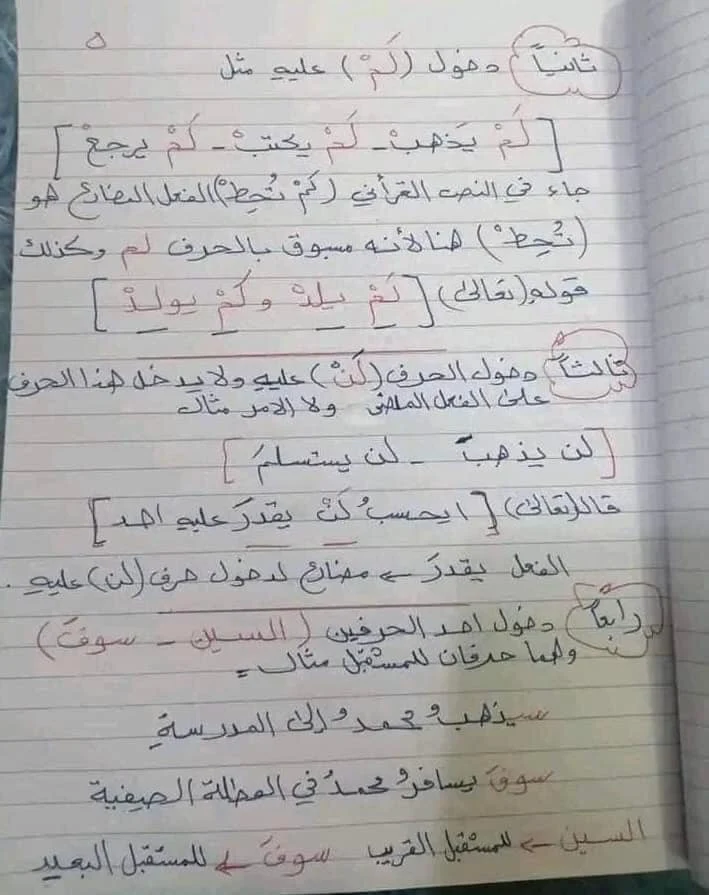 ٥
ثانياً دخول (لَمْ) عليهِ مثل
[لَمْ يَذهبْ - لَمْ يكتبْ - لَمْ يرجعْ]
جاء في النص القرأني (لَمْ تُحِطْ) الفعل المضارع هو
(تُحِطْ) هنا لأنه مسبوق بالحرف لم وكذلك
قوله (تعالى) [لَمْ يلِدْ وَلَمْ يولدْ]
ثالثاً دخول الحرف (لَنْ) عليهِ ولا يدخل هذا الحرف
على الفعل الماضي ولا الامر مثال
[لن يذهبَ - لن يستسلمَ]
قال (تعالى) [ايحسبُ لَنْ يقدرَ عليهِ احد]
الفعل يقدرَ ← مضارع لدخول حرف (لن) عليهِ.
رابعاً دخول احد الحرفين (السين - سوفَ)
وهما حرفان للمستقبل مثال
سيذهبُ محمدُ إلى المدرسةِ
سوفَ يسافرُ محمدُ في العطلة الصيفية
السين ← للمستقبل القريب سوفَ ← للمستقبل البعيد